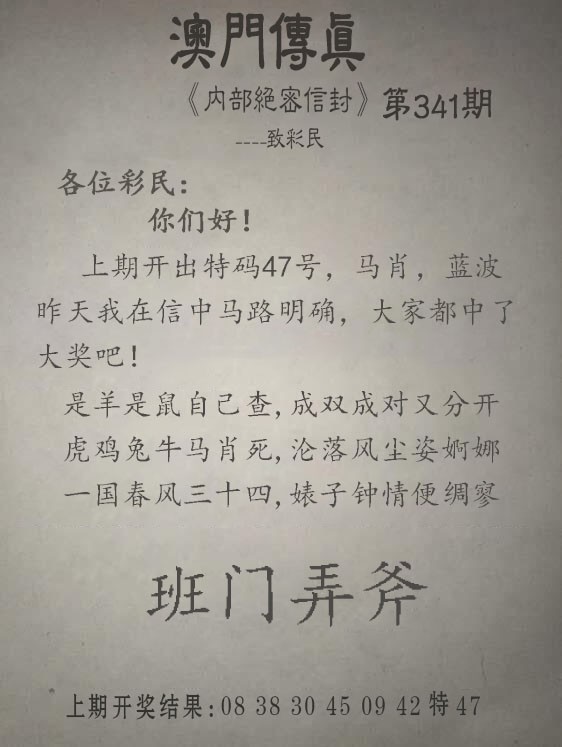 澳門傳眞
《内部絕密信封》第341期
----致彩民
各位彩民：
你们好！
上期开出特码47号，马肖，蓝波
昨天我在信中马路明确，大家都中了
大奖吧！
是羊是鼠自己查,成双成对又分开
虎鸡兔牛马肖死,沦落风尘姿婀娜
一国春风三十四,婊子钟情便绸寥
班门弄斧
上期开奖结果:08 38 30 45 09 42特47